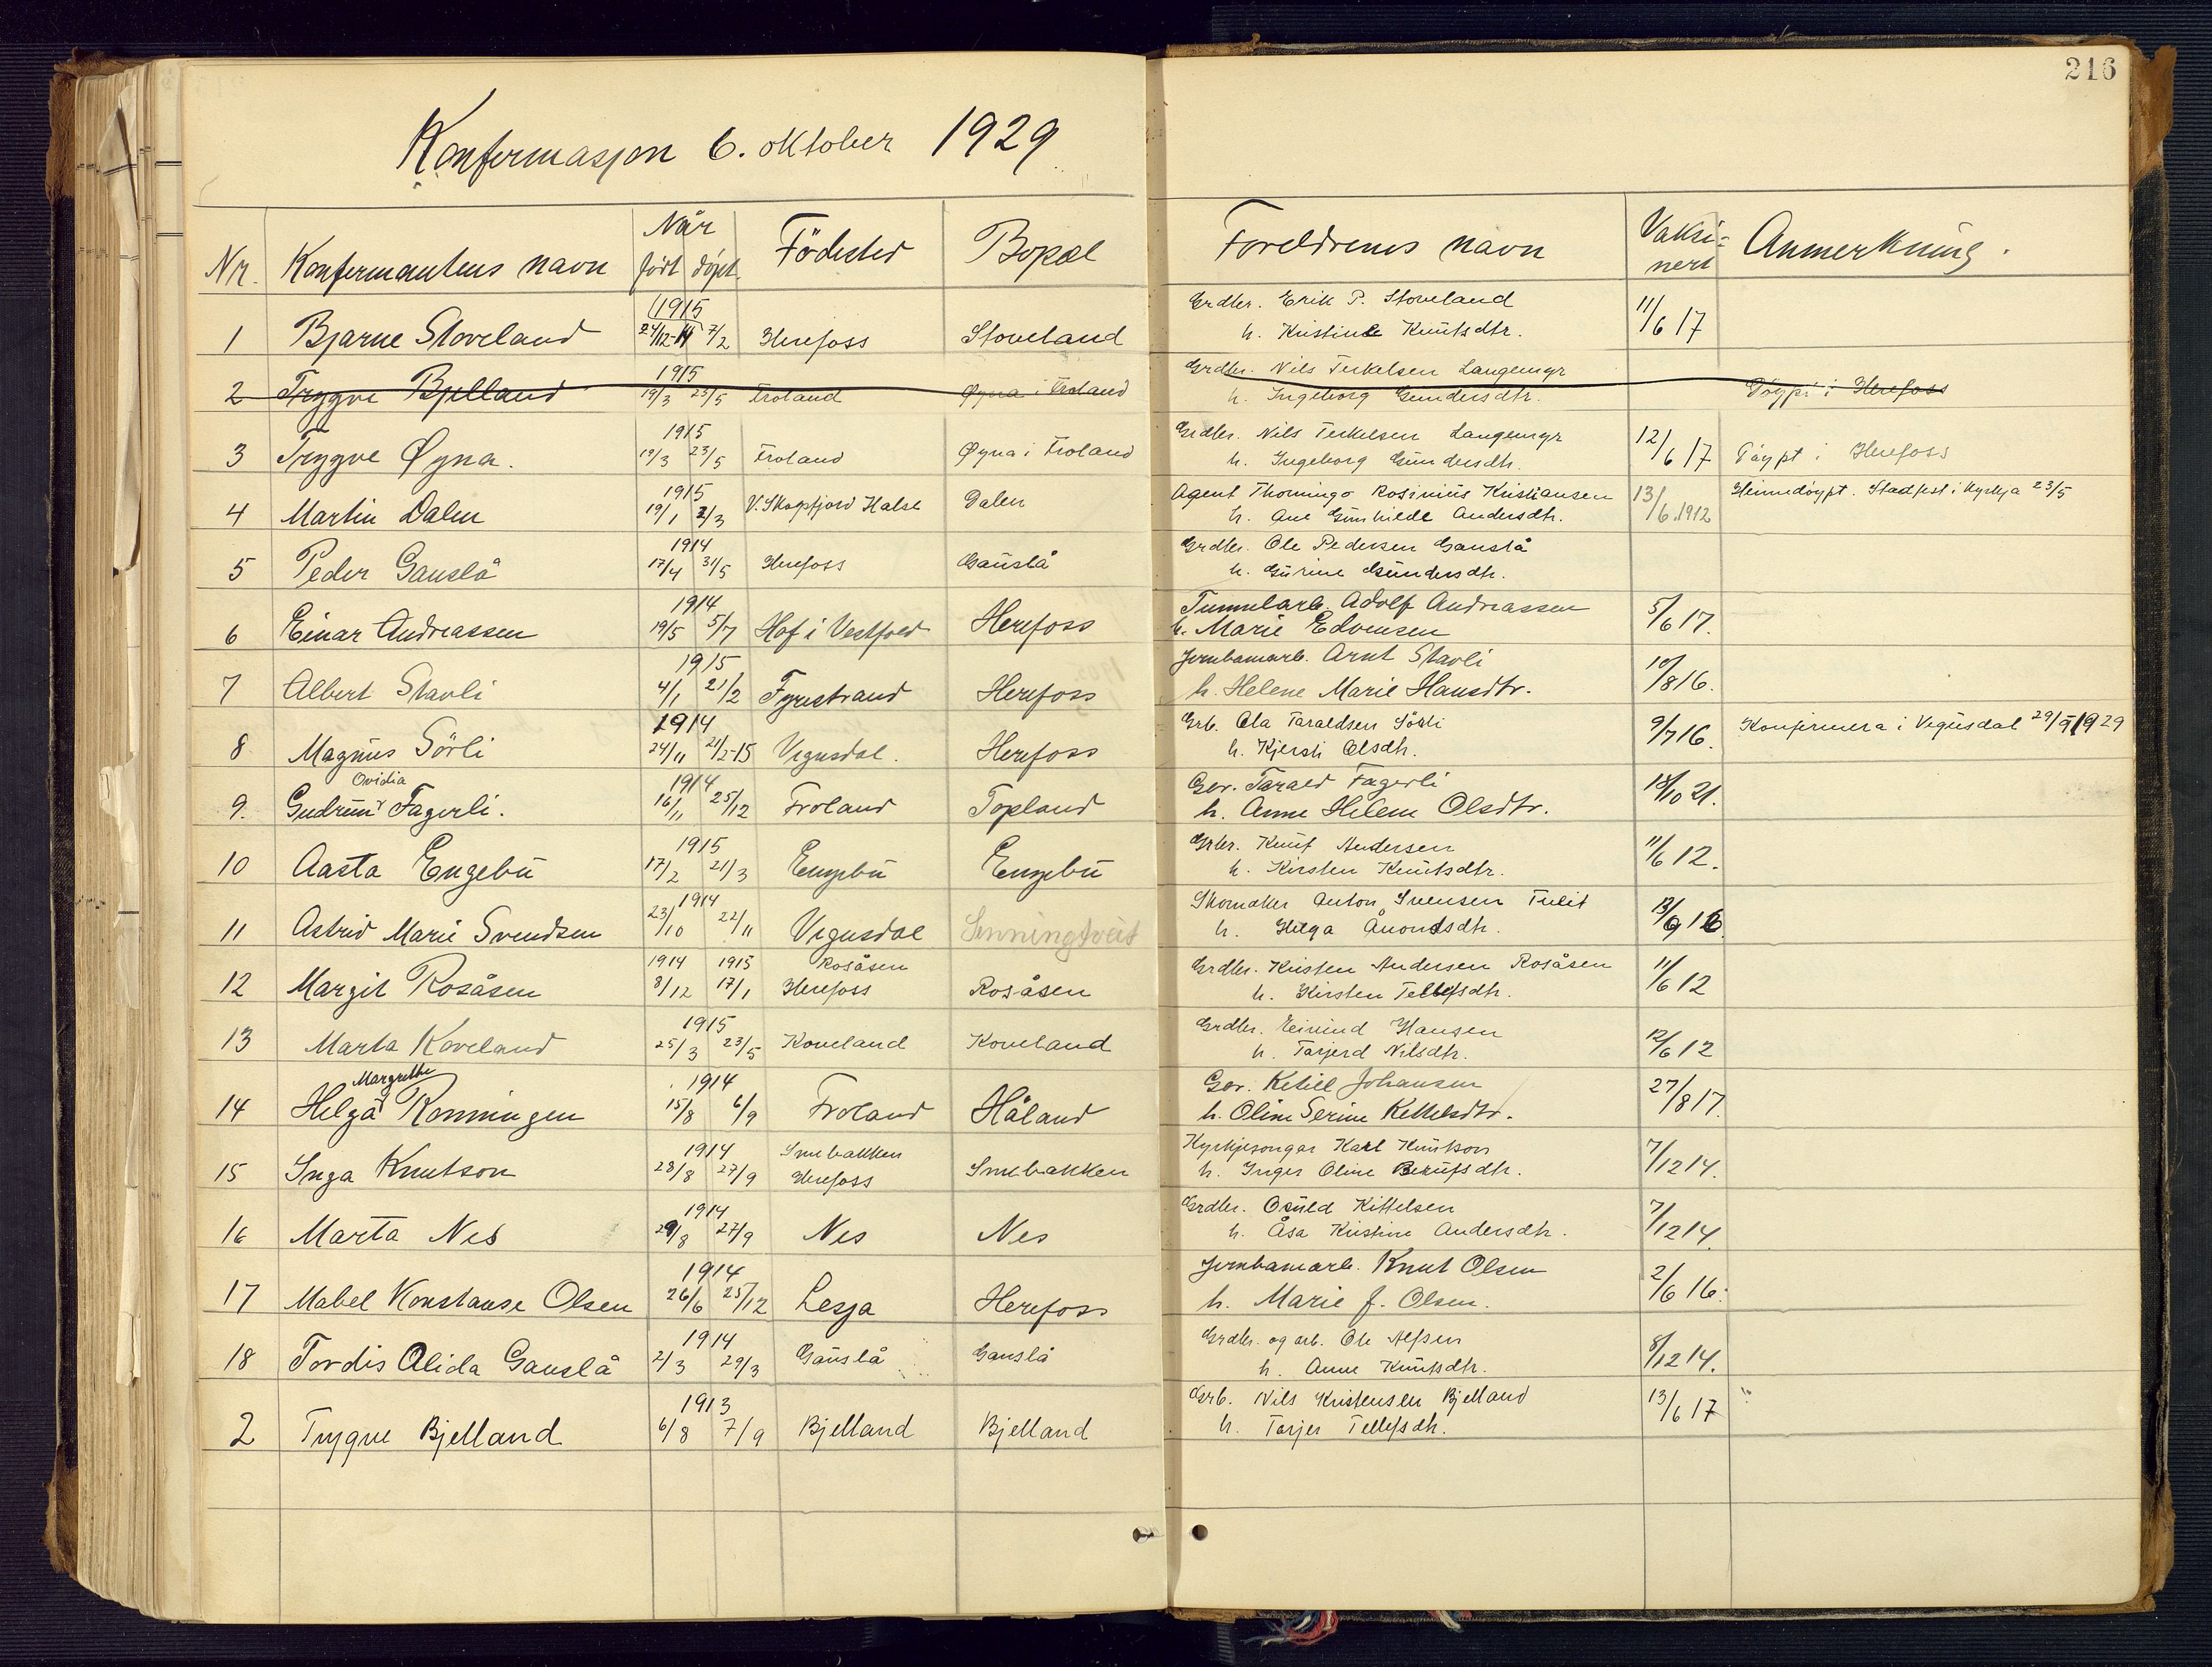 216
Konfermasjon 6. oktober 1929
Nr. Konfermantens navn Når födt döpt Födested Bopæl Foreldrenes navn Vaksinert Anmerkning.
1915 Grdbr. Erik P. Stoveland
1 Bjarne Stoveland 24/12-14 7/2 Herefoss Stoveland h. Kristine Knutsdtr. 11/6 17
1915 Grdbr. Nils Terkelsen Langemyr
2 Trygve Bjelland 19/3 23/5 Froland Øyna i Froland h. Ingeborg Gundersdtr. Döypt i Herefoss
1915 Grdbr. Nils Terkelsen Langemyr
3 Trygve Øyna. 19/3 23/5 Froland Øyna i Froland h. Ingeborg Gundersdtr. 12/6 17 Döypt i Herefoss
1915 Agent Thomingo Rosinius Kristiansen
4 Martin Dalen 19/1 2/3 V. Skogsfjord Halse Dalen h. Ane Gunhilde Andersdtr. 13/6.1912 Heimedöypt. Stadfest i kyrkja 23/5
1914 Grdbr. Ole Pedersen Gauslå
5 Peder Gauslå 17/4 31/5 Herefoss Gauslå h. Gurine Gundersdtr.
1914 Tunnelarb. Adolf Andreassen
6 Einar Andreassen 19/5 5/7 Hof i Vestfold Herefoss h. Marie Edvensen 5/6 17.
1915 Jernbanarb. Arnt Stavli
7 Albert Stavli 4/1 21/2 Fyrestrand Herefoss h. Helene Marie Hansdtr. 10/8 16.
1914 Grb. Ola Taraldsen Sörli
8 Magnus Sörli 24/11 21/2-15 Vegusdal. Herefoss h. Kjersti Olsdtr. 9/7 16. Konfirmera i Vegusdal 29/9 1929
Ovidia 1914 Gbr. Tarald Fagerli
9. Gudrun Fagerli. 16/11 25/12 Froland Topland h. Anne Helene Olsdtr. 18/10 21.
1915 Grbr. Knut Andersen
10 Aasta Engebu 17/2 21/3 Engebu Engebu h. Kirsten Knutsdtr. 11/6 12.
1914 Skomaker Anton Svensen Tveit
11 Astrid Marie Svendsen 23/10 22/11 Vegusdal Senningtveit h. Helga Ånonsdtr. 13/9 16
1914 1915 Rosåsen Grdbr. Kristen Andersen Rosåsen
12 Margit Rosåsen 8/12 17/1 Herefoss Rosåsen h. Kirsten Tellefsdtr. 11/6 12
1915 Grdbr. Eivind Hansen
13 Marta Koveland 25/3 23/5 Koveland Koveland h. Tarjerd Nilsdtr. 12/6 12
Margrethe 1914 Gbr. Ketill Johansen
14 Helga Ronningen 15/8 6/9 Froland Håland h. Oline Serine Kettelsdtr. 27/8 17.
1914 Smebakken Kyrkjesongar Karl Knutson
15 Inga Knutson 28/8 27/9 Herefoss Smebakken h. Inger Oline Berulfsdtr. 7/12 14.
1914 Grdbr. Osuld Kittelsen
16 Marta Nes 29/8 27/9 Nes Nes h. Åsa Kristine Andersdtr. 7/12 14.
1914 Jernbanarb. Knut Olsen
17 Mabel Konstanse Olsen 26/6 25/12 Lesja Herefoss h. Marie J. Olsen. 2/6 16.
1914 Grdbr. og arb. Ole Alfsen
18 Tordis Alida Gauslå 2/3 29/3 Gauslå Gauslå h. Anne Knutsdtr. 8/12 14.
1913 Grb. Nils Kristensen Bjelland
2 Trygve Bjelland 6/8 7/9 Bjelland Bjelland h. Tarjer Tellefsdtr. 13/6 17